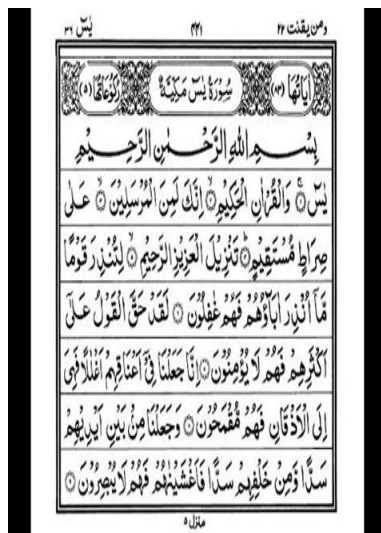 ومن يقنت ٢٢ ٤٤١ يٰسٓ ٣٦
اٰيَاتُهَا (٨٣) سُوْرَةُ يٰسٓ مَكِّيَّةٌ رُكُوْعَاتُهَا (٥)
بِسْمِ اللهِ الرَّحْمٰنِ الرَّحِيْمِ
يٰسٓ ۚ ۝ وَالْقُرْاٰنِ الْحَكِيْمِ ۙ ۝ اِنَّكَ لَمِنَ الْمُرْسَلِيْنَ ۙ ۝ عَلٰى
صِرَاطٍ مُّسْتَقِيْمٍ ؕ ۝ تَنْزِيْلَ الْعَزِيْزِ الرَّحِيْمِ ۙ ۝ لِتُنْذِرَ قَوْمًا
مَّاۤ اُنْذِرَ اٰبَآؤُهُمْ فَهُمْ غٰفِلُوْنَ ۝ لَقَدْ حَقَّ الْقَوْلُ عَلٰۤى
اَكْثَرِهِمْ فَهُمْ لَا يُؤْمِنُوْنَ ۝ اِنَّا جَعَلْنَا فِيْۤ اَعْنَاقِهِمْ اَغْلٰلًا فَهِيَ
اِلَى الْاَذْقَانِ فَهُمْ مُّقْمَحُوْنَ ۝ وَجَعَلْنَا مِنْۢ بَيْنِ اَيْدِيْهِمْ
سَدًّا وَّمِنْ خَلْفِهِمْ سَدًّا فَاَغْشَيْنٰهُمْ فَهُمْ لَا يُبْصِرُوْنَ ۝
منزل ٥